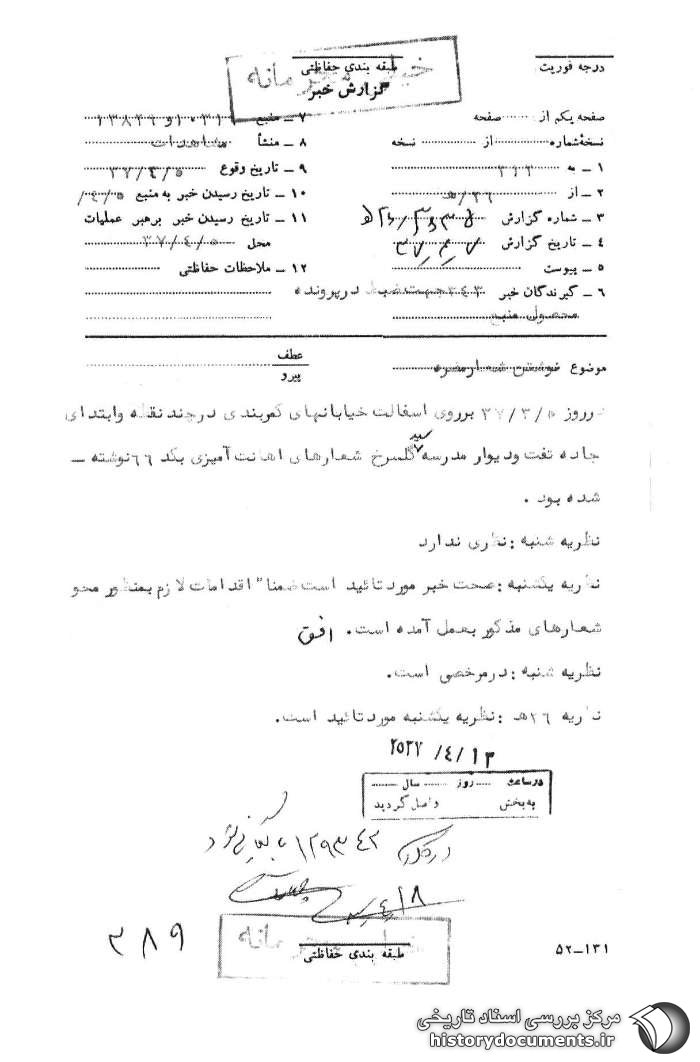 درجه فوریت
طبقه بندی حفاظتی
خیلی محرمانه
گزارش خبر
صفحه یکم از صفحه
نسخه شماره از نسخه
۱ ـ به ۳۱۲
۲ ـ از ۲۶/ه‍
۳ ـ شماره گزارش
۴ ـ تاریخ گزارش ۳۷,۴,۷
۵ ـ پیوست
۶ ـ گیرندگان خبر ۳۴۳ جهت ضبط در پرونده
محصول منبع
۷ ـ منبع
۸ ـ منشأ مشاهدات
۹ ـ تاریخ وقوع ۳۷/۴/۵
۱۰ ـ تاریخ رسیدن خبر به منبع ۴/۵/
۱۱ ـ تاریخ رسیدن خبر برهبر عملیات
محل ۳۷/۴/۵
۱۲ ـ ملاحظات حفاظتی
موضوع نوشتن شعار مضره
عطف
پیرو
درروز ۳۷/۳/۵ برروی اسفالت خیابانهای کمربندی درچند نقطه وابتدای
جاده تفت ودیوار مدرسه سید گلسرخ شعارهای اهانت آمیزی بکد ۶۶ نوشته ـ
شده بود .
نظریه شنبه : نظری ندارد
نظریه یکشنبه : صحت خبر مورد تائید است ضمنا" اقدامات لازم بمنظور محو
شعارهای مذکور بعمل آمده است. افق
نظریه شنبه : درمرخصی است.
نظریه ۲۶ه‍ : نظریه یکشنبه مورد تائید است.
۲۵۳۷/۴/۱۳
درساعت روز سال
به بخش واصل گردید
۱۲۹۳۴۲
۴/۱۸
خیلی محرمانه
طبقه بندی حفاظتی
۳۸۹
۵۲-۱۳۱
مرکز بررسی اسناد تاریخی
historydocuments.ir